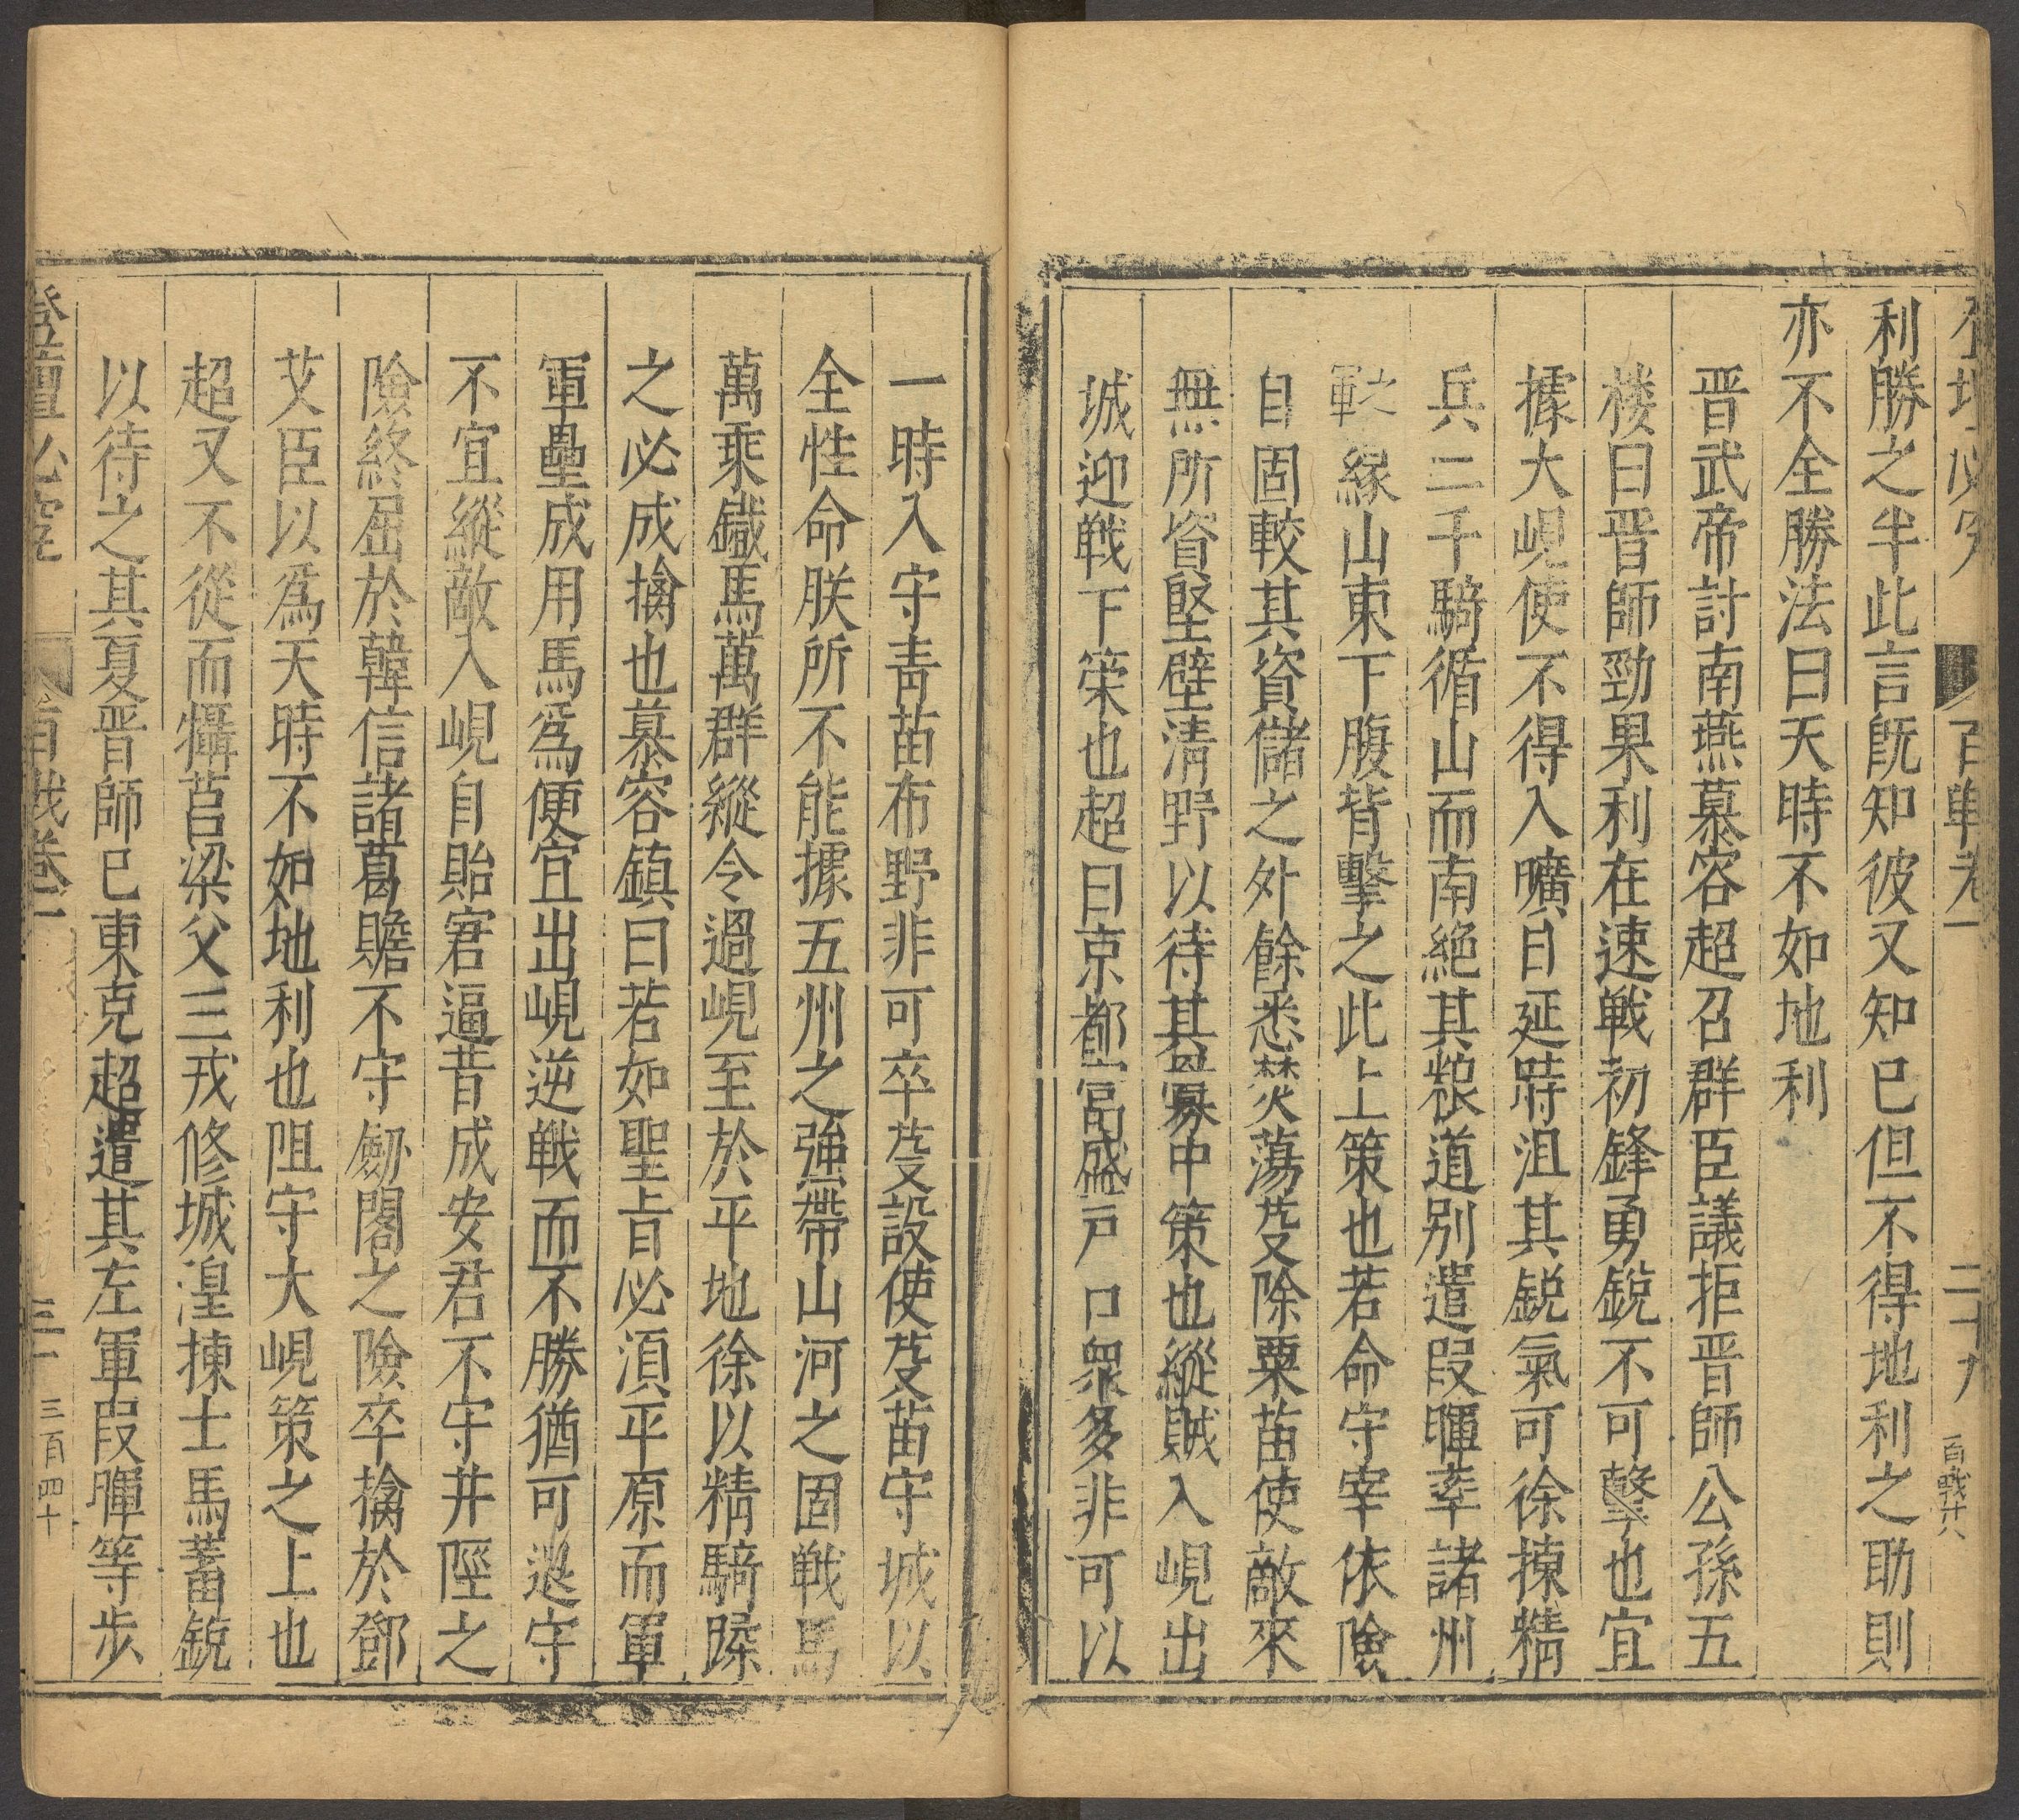 百戰卷一 二十九 百戰廿八
利勝之半此言既知彼又知已但不得地利之助則
亦不全勝法曰天時不如地利
晋武帝討南燕慕容超召群臣議拒晋師公孫五
楼曰晋師勁果利在速戦初鋒勇銳不可擊也宜
據大峴使不得入曠日延時沮其銳氣可徐揀精
兵二千騎循山而南絶其粮道別遣段暉率諸州
軍之緣山東下腹背擊之此上策也若命守宰依險
自固較其資儲之外餘悉焚蕩芟除粟苗使敵來
無所資堅壁清野以待其釁中策也縱賊入峴出
城迎戦下策也超曰京都富盛戸口衆多非可以
一時入守青苗布野非可卒芟設使芟苗守城以
全性命朕所不能據五州之強帶山河之固戦馬
萬乘鐵馬萬群縱令過峴至於平地徐以精騎蹂
之必成擒也慕容鎮曰若如聖旨必須平原而軍
軍壘成用馬爲便宜出峴逆戦而不勝猶可退守
不宜縱敵入峴自貽窘逼昔成安君不守井陘之
險終屈於韓信諸葛瞻不守劒閣之險卒擒於鄧
艾臣以爲天時不如地利也阻守大峴策之上也
超又不從而攝莒梁父三戎修城湟揀士馬蓄銳
以待之其夏晋師已東克超遣其左軍段暉等步
登壇必究 百戰卷一 三一 三百四十